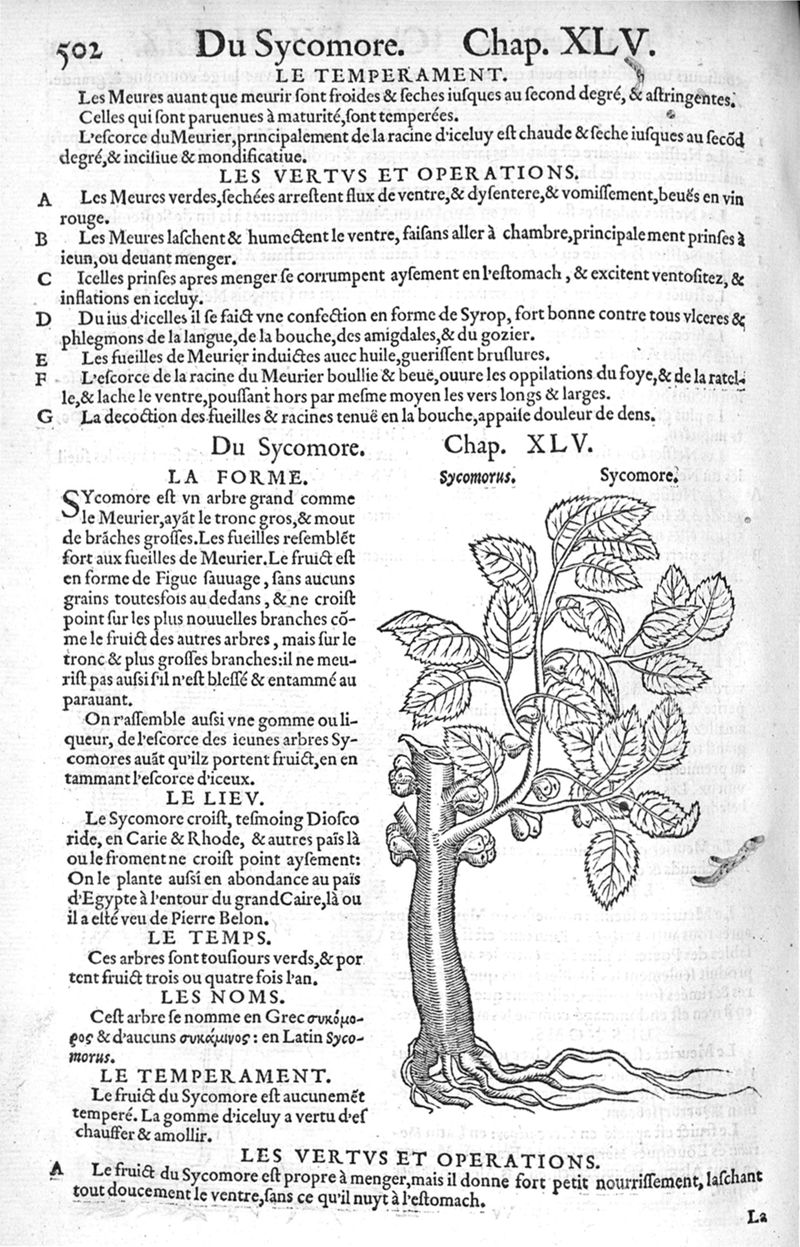 502 Du Sycomore. Chap. XLV.
LE TEMPERAMENT.
Les Meures auant que meurir ſont froides & ſeches iuſques au ſecond degré, & aſtringentes.
Celles qui ſont paruenues à maturité, ſont temperées.
L'eſcorce du Meurier, principalement de la racine d'iceluy eſt chaude & ſeche iuſques au ſecõd
degré, & inciſiue & mondificatiue.
LES VERTVS ET OPERATIONS.
A Les Meures verdes, ſechées arreſtent flux de ventre, & dyſentere, & vomiſſement, beuës en vin
rouge.
B Les Meures laſchent & humectent le ventre, faiſans aller à chambre, principalement prinſes à
ieun, ou deuant menger.
C Icelles prinſes apres menger ſe corrumpent ayſement en l'eſtomach, & excitent ventoſitez, &
inflations en iceluy.
D Du ius d'icelles il ſe faict vne confection en forme de Syrop, fort bonne contre tous vlceres &
phlegmons de la langue, de la bouche, des amigdales, & du gozier.
E Les fueilles de Meurier induictes auec huile, gueriſſent bruſlures.
F L'eſcorce de la racine du Meurier boullie & beuë, ouure les oppilations du foye, & de la ratel-
le, & lache le ventre, pouſſant hors par meſme moyen les vers longs & larges.
G La decoction des fueilles & racines tenuë en la bouche, appaiſe douleur de dens.
Du Sycomore. Chap. XLV.
LA FORME.
SYcomore eſt vn arbre grand comme
le Meurier, ayãt le tronc gros, & mout
de brãches groſſes. Les fueilles reſemblẽt
fort aux fueilles de Meurier. Le fruict eſt
en forme de Figue ſauuage, ſans aucuns
grains toutesfois au dedans, & ne croiſt
point ſur les plus nouuelles branches cõ-
me le fruict des autres arbres, mais ſur le
tronc & plus groſſes branches: il ne meu-
riſt pas auſſi ſ'il n'eſt bleſſé & entammé au
parauant.
On r'aſſemble auſſi vne gomme ou li-
queur, de l'eſcorce des ieunes arbres Sy-
comores auãt qu'ilz portent fruict, en en
tammant l'eſcorce d'iceux.
LE LIEV.
Le Sycomore croiſt, teſmoing Dioſco
ride, en Carie & Rhode, & autres païs là
ou le froment ne croiſt point ayſement:
On le plante auſſi en abondance au païs
d'Egypte à l'entour du grand Caire, là ou
il a eſté veu de Pierre Belon.
LE TEMPS.
Ces arbres ſont touſiours verds, & por
tent fruict trois ou quatre fois l'an.
LES NOMS.
Ceſt arbre ſe nomme en Grec συκόμο-
ρος & d'aucuns συκάμινος: en Latin Syco-
morus.
LE TEMPERAMENT.
Le fruict du Sycomore eſt aucunemẽt
temperé. La gomme d'iceluy a vertu d'eſ
chauffer & amollir.
Sycomorus. Sycomore.
LES VERTVS ET OPERATIONS.
A Le fruict du Sycomore eſt propre à menger, mais il donne fort petit nourriſſement, laſchant
tout doucement le ventre, ſans ce qu'il nuyt à l'eſtomach.
La